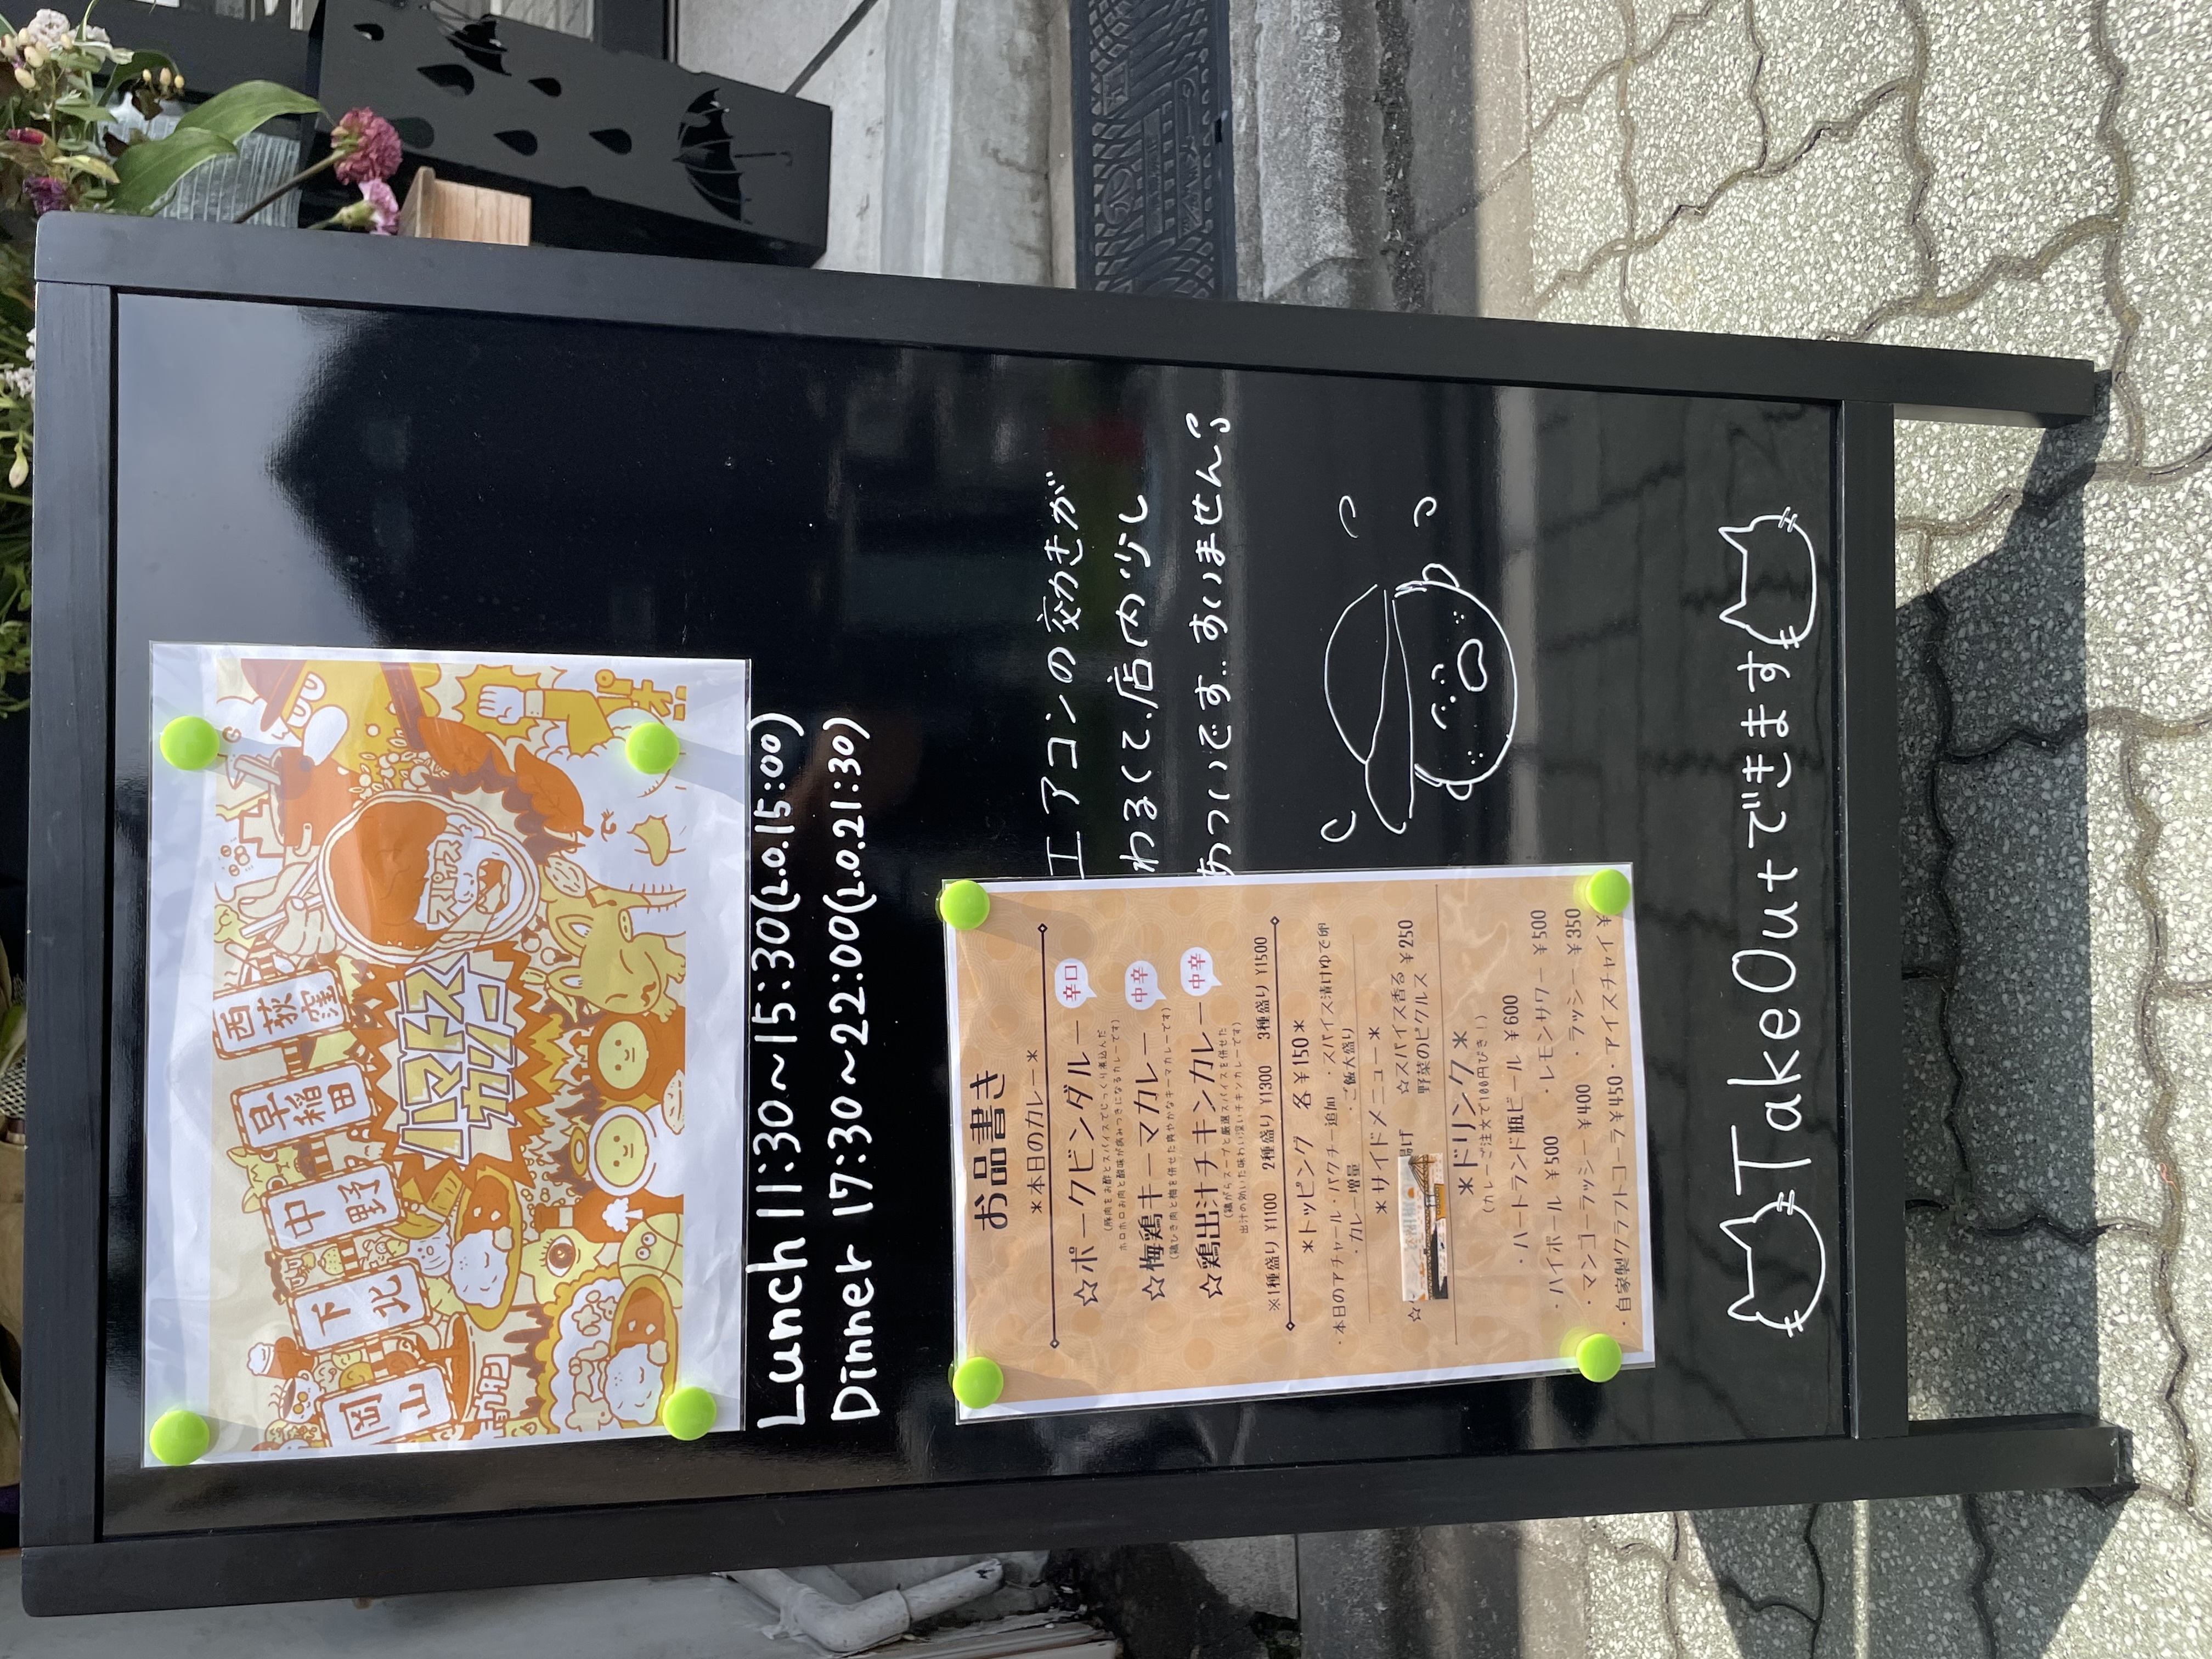 西荻窪
早稲田
中野
下北
岡山
サマトス
カリー
スパイス
Lunch 11:30~15:30(L.O.15:00)
Dinner 17:30~22:00(L.O.21:30)
エアコンの効きが
わるくて、店内少し
あついです。すいません
お品書き
*本日のカレー*
☆ポークビンダルー 辛口
(豚肉をお酢とスパイスでじっくり煮込んだ
ホロホロお肉と酸味が病みつきになるカレーです)
☆梅鶏キーマカレー 中辛
(鶏ひき肉と梅を併せた爽やかなキーマカレーです)
☆鶏出汁チキンカレー 中辛
(鶏がらスープと厳選スパイスを併せた
出汁の効いた味わい深いチキンカレーです)
※1種盛り ¥1100 2種盛り ¥1300 3種盛り ¥1500
*トッピング 各¥150*
・本日のアチャール・パクチー追加 ・スパイス漬けゆで卵
・カレー増量 ・ご飯大盛り
*サイドメニュー*
☆ 揚げ ☆スパイス香る
野菜のピクルス ¥250
*ドリンク*
(カレーご注文で100円びき!)
・ハートランド瓶ビール ¥600
・ハイボール ¥500 ・レモンサワー ¥500
・マンゴーラッシー ¥400 ・ラッシー ¥350
・自家製クラフトコーラ¥450・アイスチャイ ¥
Take Outできます